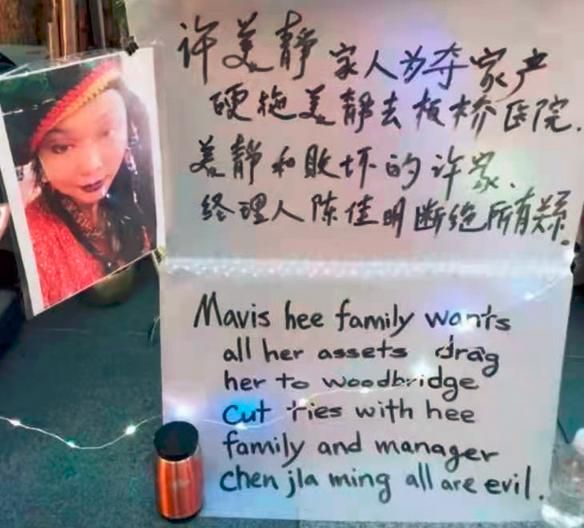 许美静 家人为夺家产
硬拖美静去板桥医院.
美静和败坏的许家.
经理人陈佳明断绝所有关系.
Mavis hee family wants
all her assets drag
her to woodbridge
cut ties with hee
family and manager
chen jla ming all are evil.